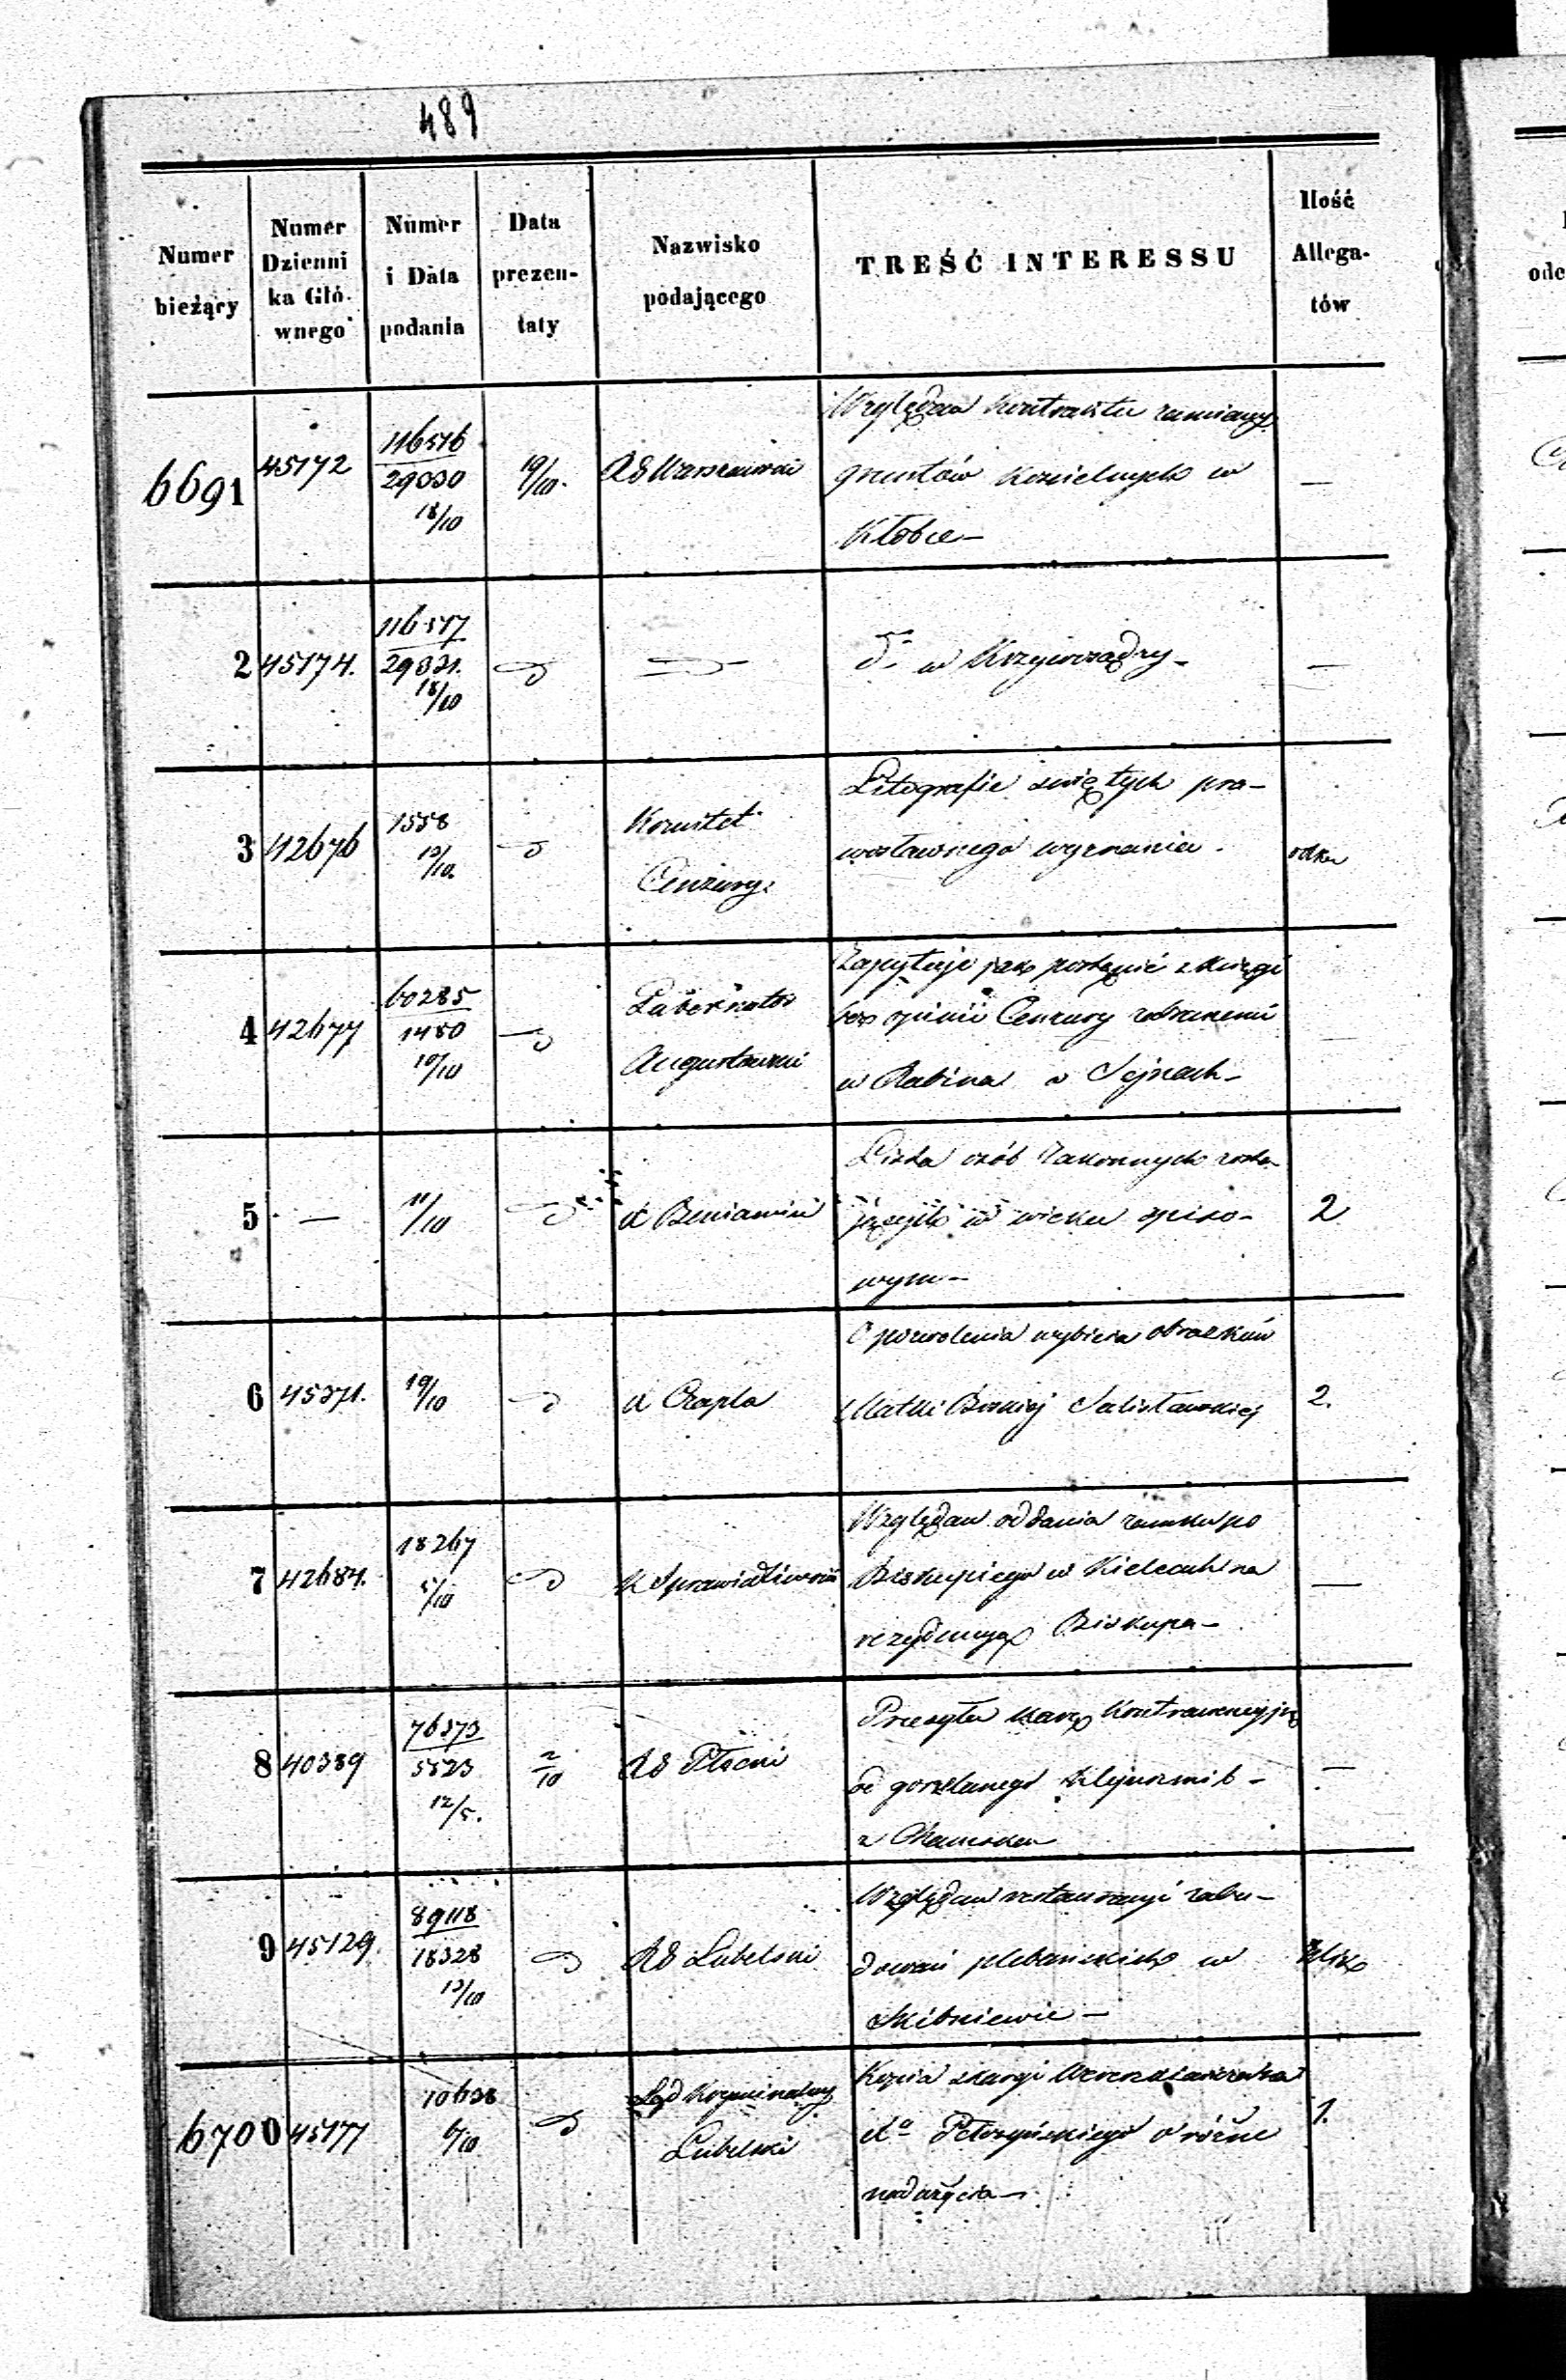 489
Numer bieżący
Numer Dzienni ka Głó- wnego
Numer i Data podania
Data prezen- taty
Nazwisko podającego
TREŚĆ INTERESSU
Ilość Allega- tów
6691 45172 116516 29030 18/10 19/10. RG Warszawski
Względem Kontraktu zamiany
gruntów Kościelnych w
Kłobce —
2 45174. 116517 29031. 18/10
do w Krzywosądzy —
3 42676 1558 12/10. Komitet Cenzury.
Litografie świętych pra-
wosławnego wyznania.
4 42677 60285 1480 10/10 Gubernator Augustowski
Zapytuje jak postąpić z księgi
bez opinii Cenzury zabranemi
u Rabina w Sejnach —
5 — 11/10 X Beniamin
Lista osób Zakonnych zosta-
jących w wieku spiso-
wym — 2
6 45371. 19/10 X Czapla
O pozwolenia wybicia obrazków
Matki Boskiej 2.
7 42684. 18267 5/10 K Sprawiedliwości
Względem oddania zamku po
Biskupiego w Kielcach na
rezydencyą Biskupa — —
8 40389 76373 5823 12/5. 2/10 RG Płocki
Przesyła karę Kontrawencyjną
od gorzelanego
z
9 45129. 89118 18328 13/10 RG Lubelski
Względem restauracyi zabu-
dowań plebańskich w
Skibniewie —
6700 45177 10638 6/10 Sąd Kryminalny Lubelski
Kopia skargi
Xa o różne
nadużycia — 1.